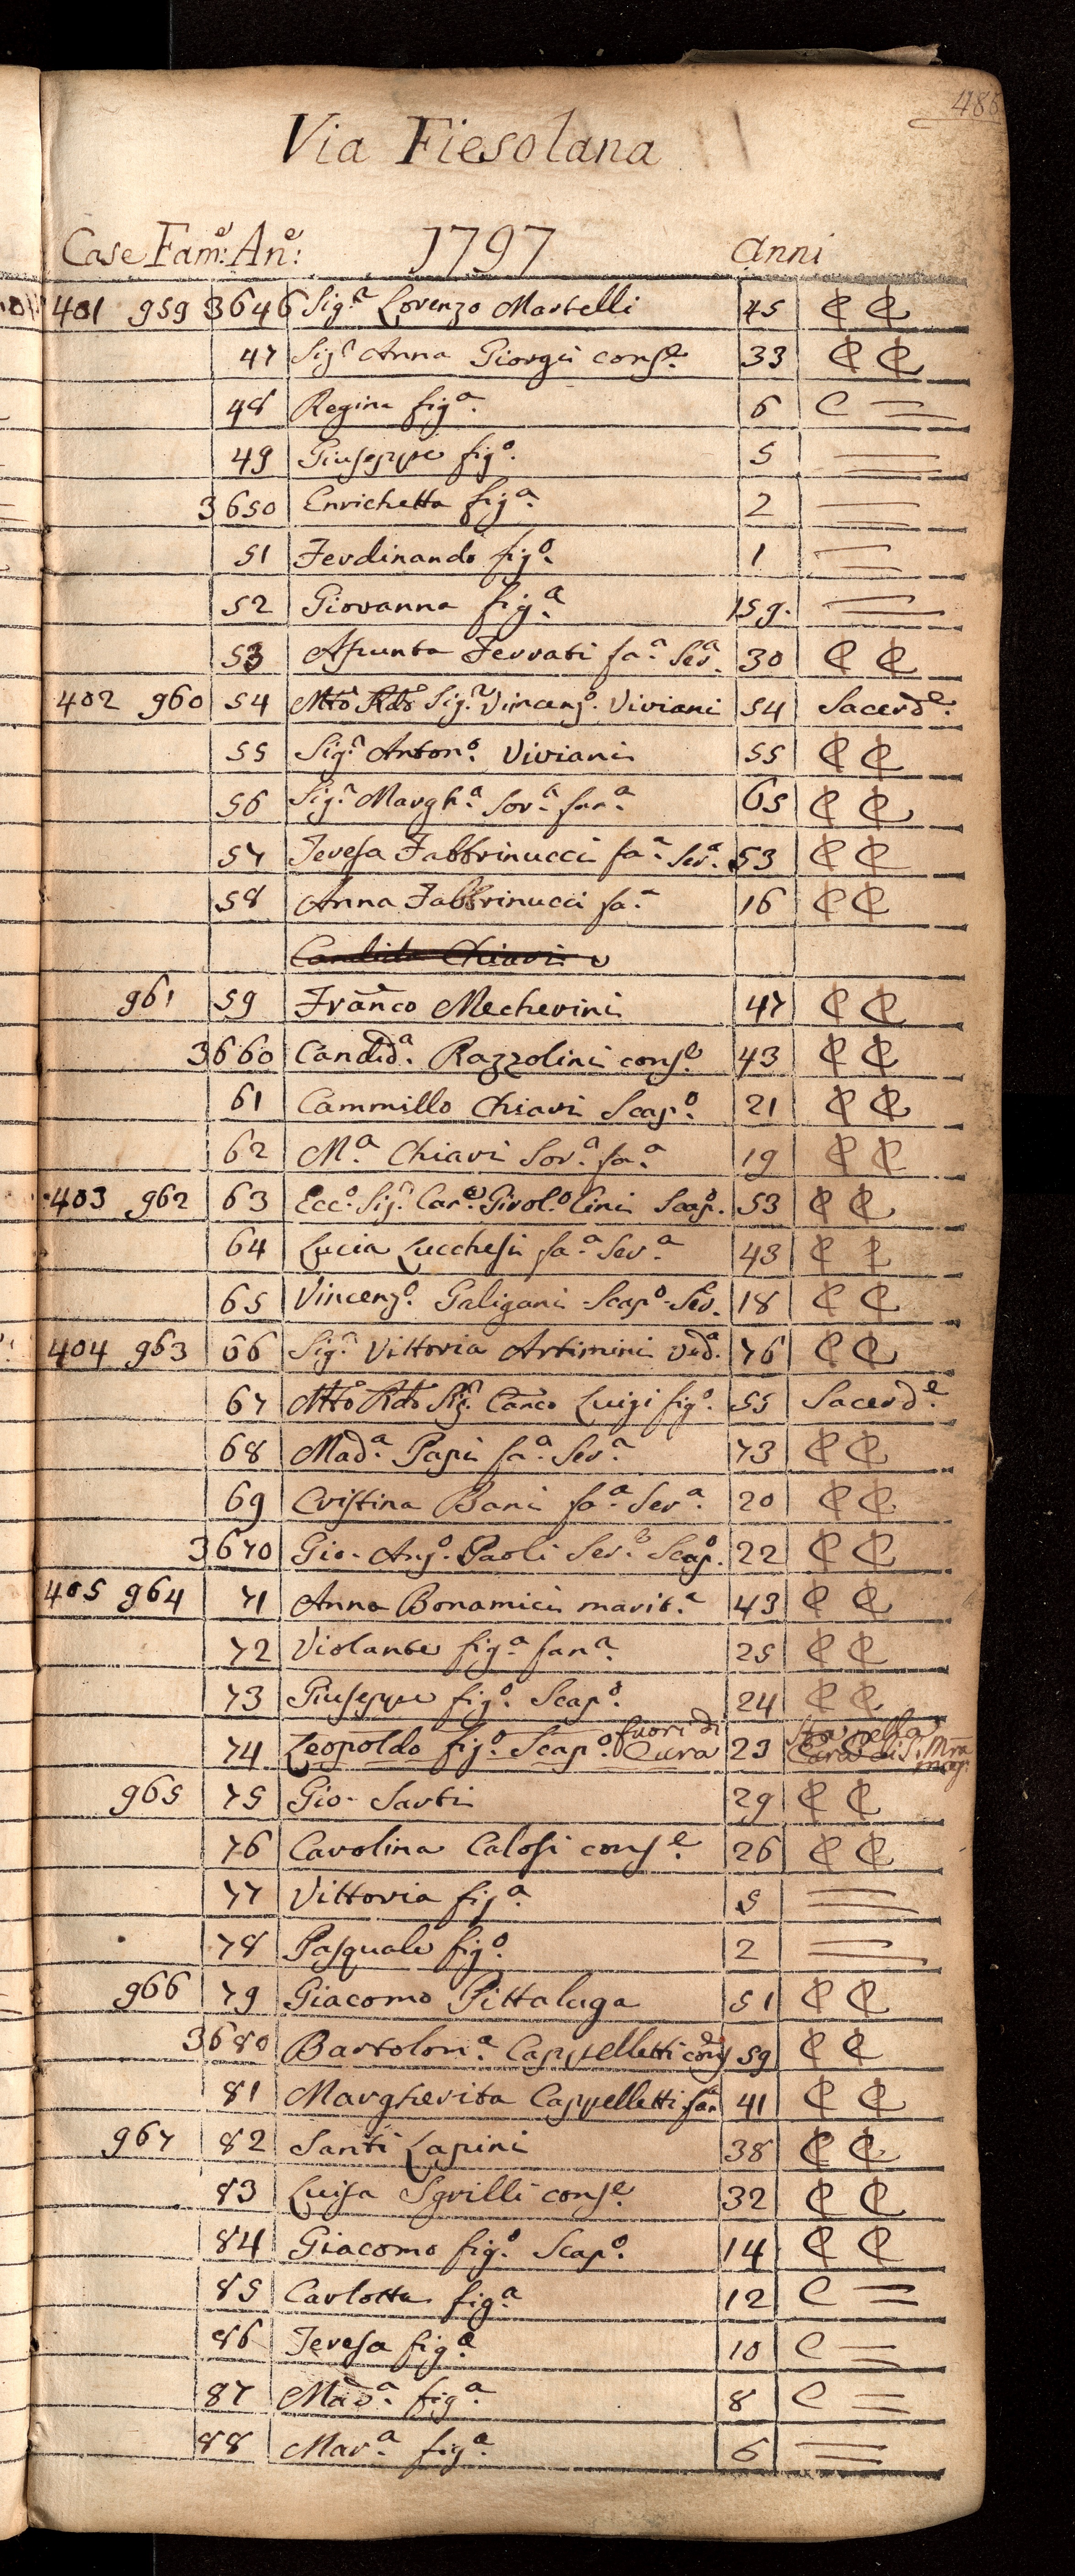 488
Via Fiesolana
Case Fam:e An:e 1797 anni
401 959 3646 Sig.r Lorenzo Martelli 45 C C
47 Sig.a Anna Giorgi cons.e 33 C C
48 Regina fig.a 6 C =
49 Giuseppe fig.o 5 =
3650 Enrichetta fig.a 2 =
51 Ferdinando fig.o 1 =
52 Giovanna fig.a 15 g. =
53 Assunta Ferrati fa.a Ser.a 30 C C
402 960 54 Mto Rdo Sig.r Vincenz.o Viviani 54 Sacerd.e
55 Sig.r Anton.o Viviani 55 C C
56 Sig.a Margh.a Sor.a fan.a 65 C C
57 Teresa Fabbrinucci fa.a Ser.a 53 C C
58 Anna Fabbrinucci fa.a 16 C C
Candida Chiari
961 59 Franco Mecherini 47 C C
3660 Candid.a Razzolini cons.e 43 C C
61 Cammillo Chiari Scap.o 21 C C
62 M.a Chiari Sor.a fa.a 19 C C
403 962 63 Ecc.o Sig.r Cav.e Girol.o Cini Scap.o 53 C C
64 Lucia Lucchesi fa.a Ser.a 43 C C
65 Vincenz.o Galigani Scap.o Ser. 18 C C
404 963 66 Sig.a Vittoria Artimini Ved.a 76 C C
67 Mto Rdo Sig.r Canco Luigi fig.o 55 Sacerd.e
68 Mad.a Papi fa.a Ser.a 73 C C
69 Cristina Bani fa.a Ser.a 20 C C
3670 Gio. Ang.o Paoli Ser.e Scap.o 22 C C
405 964 71 Anna Bonamici marit.a 43 C C
72 Violante fig.a fan.a 25 C C
73 Giuseppe fig.o Scap.o 24 C C
74 Leopoldo fig.o Scap.o fuori di Cura 23 Sta nella Cura di S. Mra
965 75 Gio. Sarti 29 C C
76 Carolina Calosi cons.e 26 C C
77 Vittoria fig.a 5 =
78 Pasquale fig.o 2 =
966 79 Giacomo Pittaluga 51 C C
3680 Bartolom.a Cappelletti cons.e 59 C C
81 Margherita Cappelletti fan.a 41 C C
967 82 Santi Lapini 38 C C
83 Luisa Sgrilli cons.e 32 C C
84 Giacomo fig.o Scap.o 14 C C
85 Carlotta fig.a 12 C =
86 Teresa fig.a 10 C =
87 Mad.a fig.a 8 C =
88 Mar.a fig.a 6 =